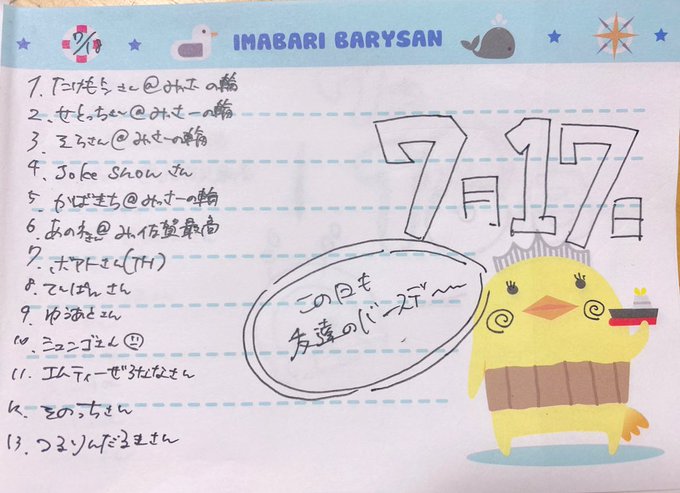 7/17
IMABARI BARYSAN
1. たけもとさん@みっさーの輪
2. せとっちさん@みっさーの輪
3. そらさん@みっさーの輪
4. Joke Showさん
5. かばきち@みっさーの輪
6. あのねさん@みぃ佐賀最高
7. ポアトさん(TH)
8. てんぱんさん
9. ゆうあとさん
10. ミュンゴさん
11. エムティーぜろたなさん
12. そのっちさん
13. つるりんだるまさん
7月17日
この日も
友達のバースデ〜〜